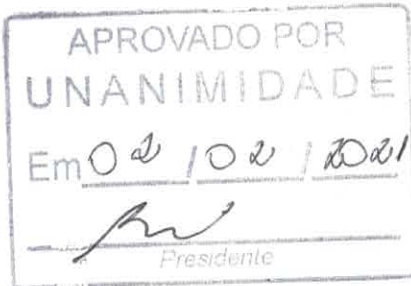 APROVADO POR
UNANIMIDADE
Em 02 / 02 / 2021
Presidente